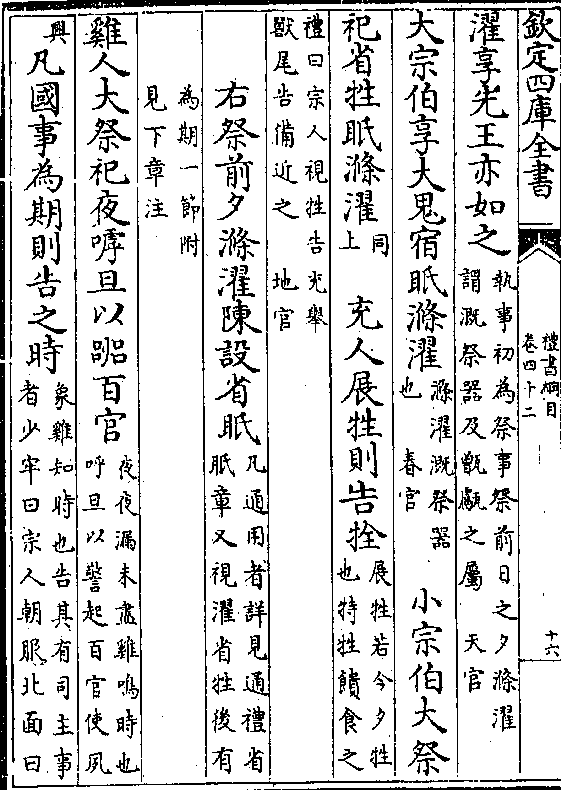 欽定四庫全書
禮書綱目
卷四十二
十六
濯享先王亦如之
執事初為祭事祭前日之夕滌濯
謂溉祭器及甑甗之屬 天官
大宗伯享大鬼宿眡滌濯
滌濯溉祭器
也 春官
小宗伯大祭
祀省牲眡滌濯
同
上
充人展牲則告牷
展牲若今夕牲
也特牲饋食之
禮曰宗人視牲告充舉
獸尾告備近之 地官
右祭前夕滌濯陳設省眡
凡通用者詳見通禮省
眡章又視濯省牲後有
為期一節附
見下章注
雞人大祭祀夜嘑旦以嘂百官
夜夜漏未盡雞鳴時也
呼旦以警起百官使夙
興
凡國事為期則告之時
象雞知時也告其有司主事
者少牢曰宗人朝服北面曰